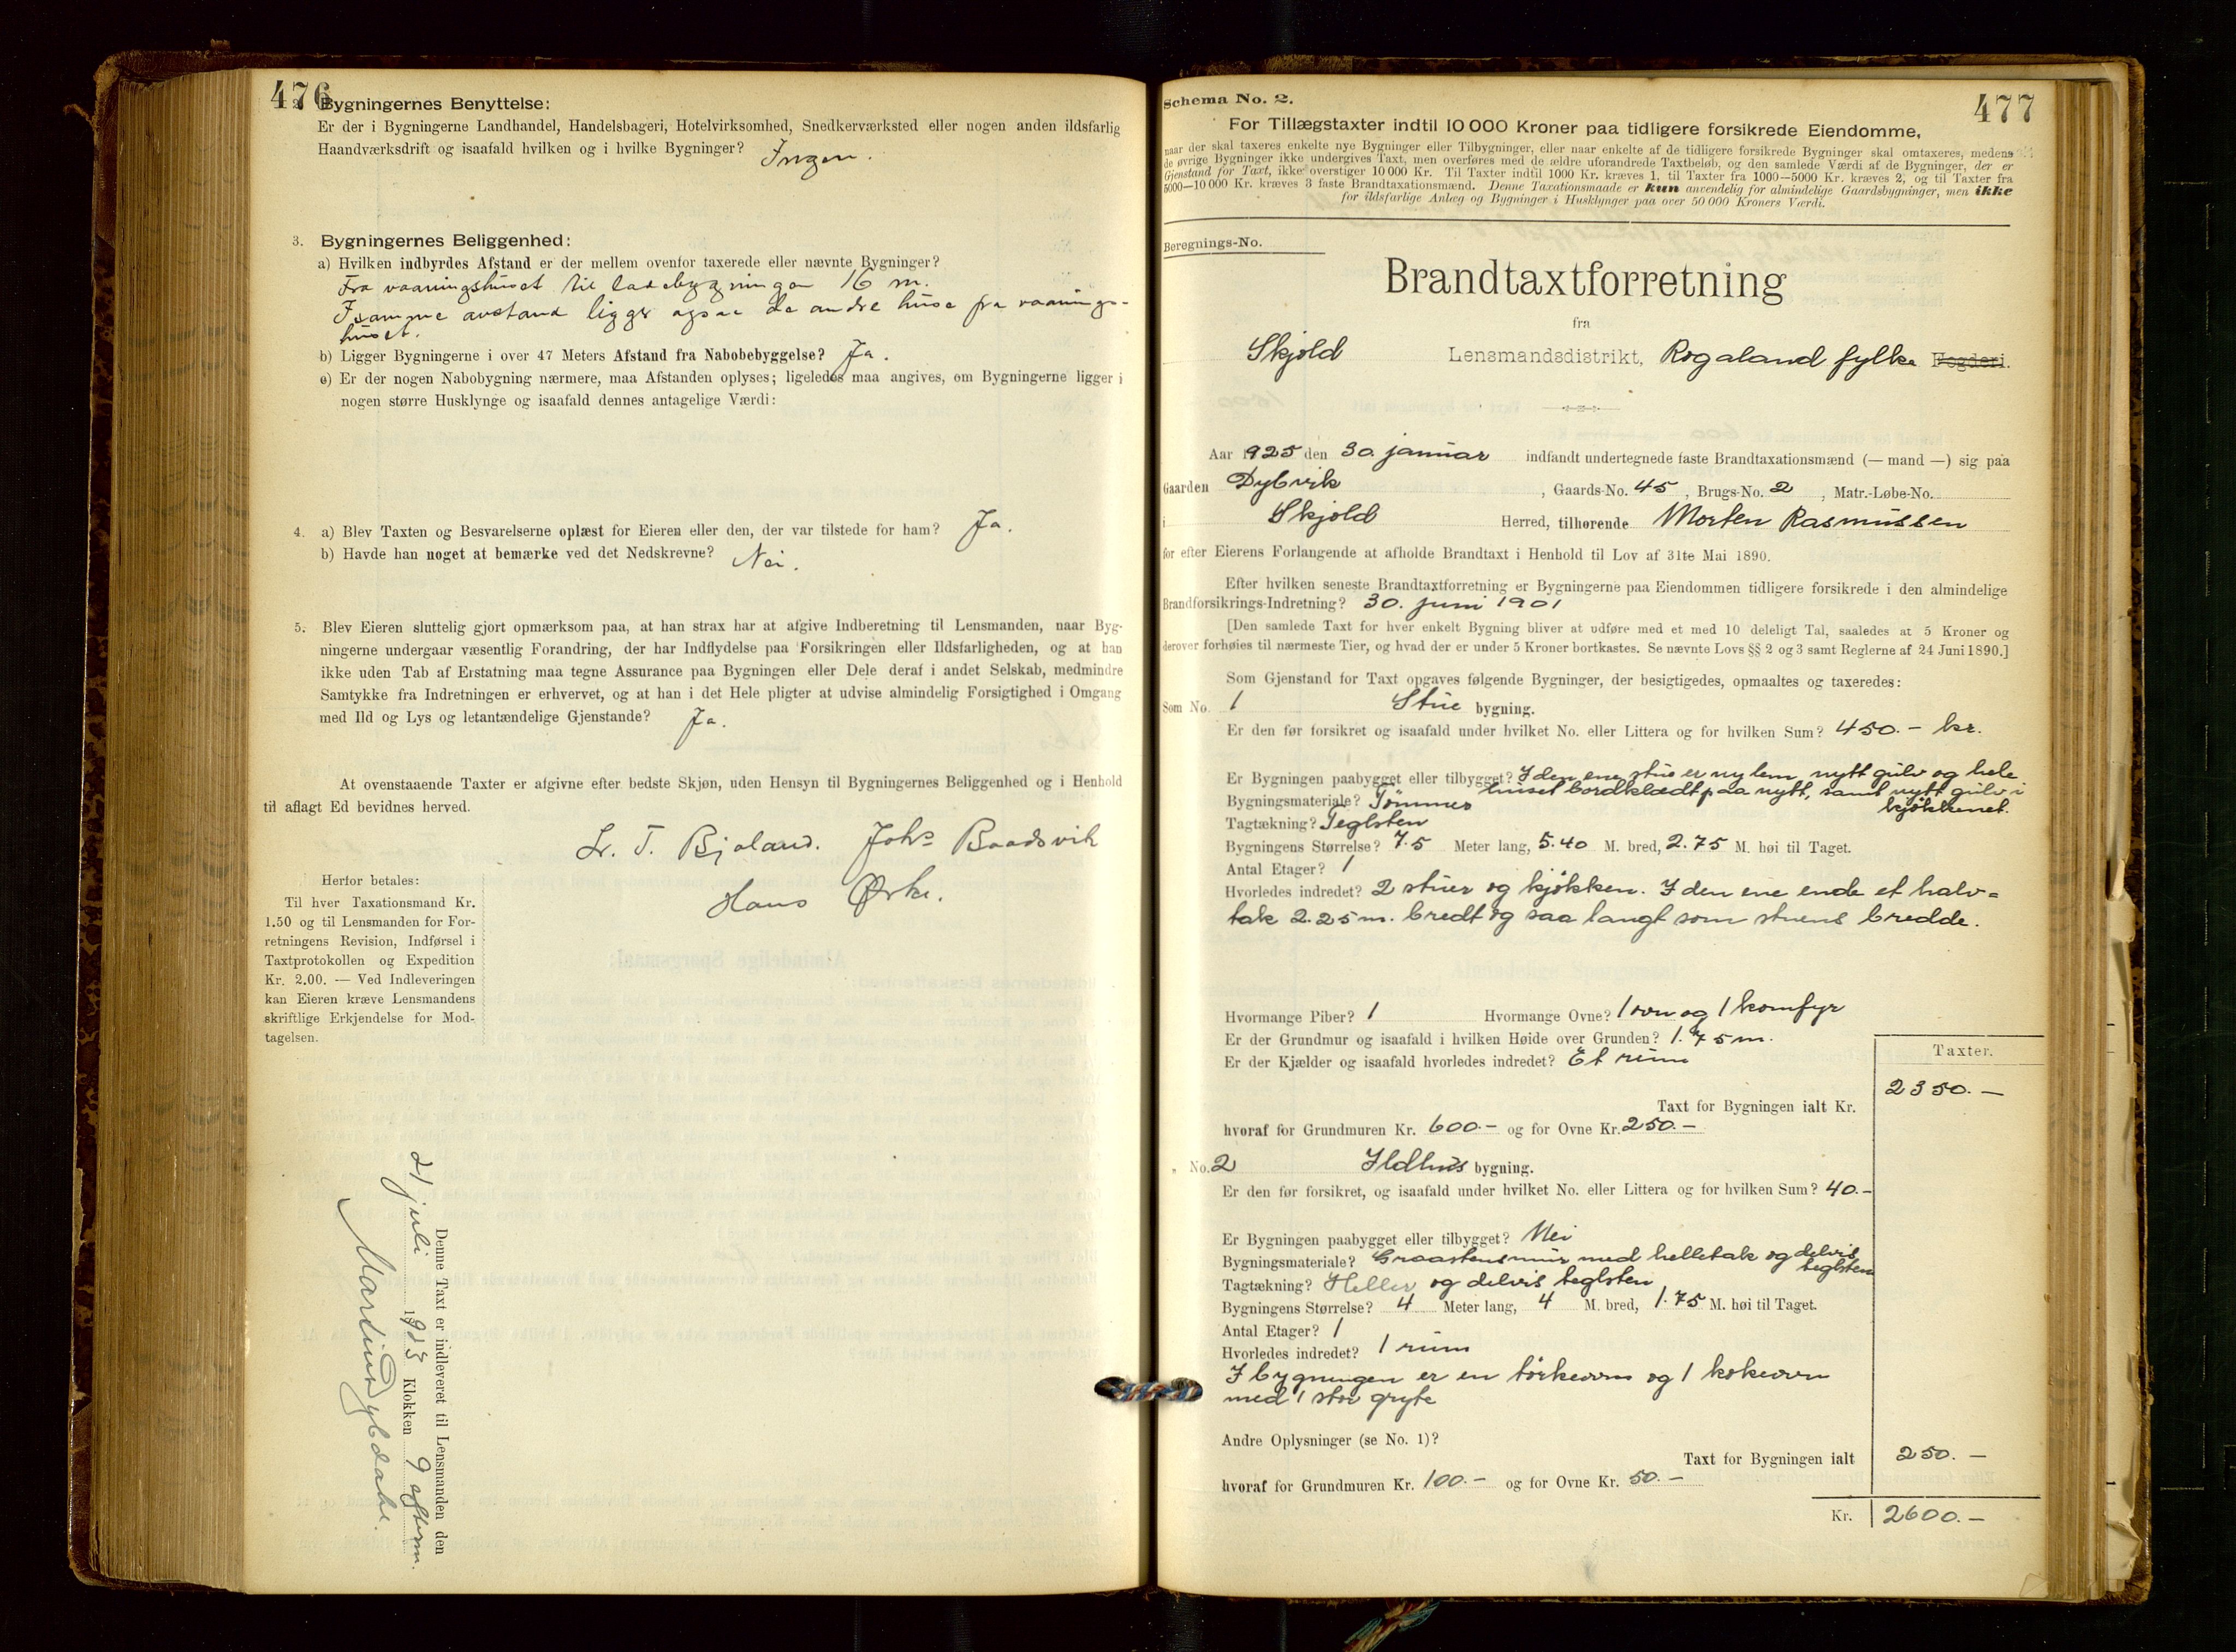 476
2. Bygningernes Benyttelse:
Er der i Bygningerne Landhandel, Handelsbageri, Hotelvirksomhed, Snedkerværksted eller nogen anden ildsfarlig
Haandværksdrift og isaafald hvilken og i hvilke Bygninger? Ingen.
3. Bygningernes Beliggenhed:
a) Hvilken indbyrdes Afstand er der mellem ovenfor taxerede eller nævnte Bygninger?
Fra vaaningshuset til ladebygningen 16 m.
I samme avstand ligger ogsaa de andre huse fra vaanings-
huset.
b) Ligger Bygningerne i over 47 Meters Afstand fra Nabobebyggelse? Ja.
c) Er der nogen Nabobygning nærmere, maa Afstanden oplyses; ligeledes maa angives, om Bygningerne ligger i
nogen større Husklynge og isaafald dennes antagelige Værdi:
4. a) Blev Taxten og Besvarelserne oplæst for Eieren eller den, der var tilstede for ham? Ja.
b) Havde han noget at bemærke ved det Nedskrevne? Nei.
5. Blev Eieren sluttelig gjort opmærksom paa, at han strax har at afgive Indberetning til Lensmanden, naar Byg-
ningerne undergaar væsentlig Forandring, der har Indflydelse paa Forsikringen eller Ildsfarligheden, og at han
ikke uden Tab af Erstatning maa tegne Assurance paa Bygningen eller Dele deraf i andet Selskab, medmindre
Samtykke fra Indretningen er erhvervet, og at han i det Hele pligter at udvise almindelig Forsigtighed i Omgang
med Ild og Lys og letantændelige Gjenstande? Ja.
At ovenstaaende Taxter er afgivne efter bedste Skjøn, uden Hensyn til Bygningernes Beliggenhed og i Henhold
til aflagt Ed bevidnes herved.
L. T. Bjoland. Johs Baadsvik
Hans Ørke.
Herfor betales:
Til hver Taxationsmand Kr.
1.50 og til Lensmanden for For-
retningens Revision, Indførsel i
Taxtprotokollen og Expedition
Kr. 2.00. — Ved Indleveringen
kan Eieren kræve Lensmandens
skriftlige Erkjendelse for Mod-
tagelsen.
Denne Taxt er indleveret til Lensmanden den
21 juli 1925 Klokken 9 efterm.
Schema No. 2.
477
For Tillægstaxter indtil 10 000 Kroner paa tidligere forsikrede Eiendomme,
naar der skal taxeres enkelte nye Bygninger eller Tilbygninger, eller naar enkelte af de tidligere forsikrede Bygninger skal omtaxeres, medens
de øvrige Bygninger ikke undergives Taxt, men overføres med de ældre uforandrede Taxtbeløb, og den samlede Værdi af de Bygninger, der er
Gjenstand for Taxt, ikke overstiger 10 000 Kr. Til Taxter indtil 1000 Kr. kræves 1, til Taxter fra 1000—5000 Kr. kræves 2, og til Taxter fra
5000—10 000 Kr. kræves 3 faste Brandtaxationsmænd. Denne Taxationsmaade er kun anvendelig for almindelige Gaardsbygninger, men ikke
for ildsfarlige Anlæg og Bygninger i Husklynger paa over 50 000 Kroners Værdi.
Beregnings-No.
Brandtaxtforretning
fra
Skjold Lensmandsdistrikt, Rogaland fylke Fogderi.
Aar 1925 den 30. januar indfandt undertegnede faste Brandtaxationsmænd (— mand —) sig paa
Gaarden Dybvik , Gaards-No. 45 , Brugs-No. 2 , Matr.-Løbe-No.
i Skjold Herred, tilhørende Morten Rasmussen
for efter Eierens Forlangende at afholde Brandtaxt i Henhold til Lov af 31te Mai 1890.
Efter hvilken seneste Brandtaxtforretning er Bygningerne paa Eiendommen tidligere forsikrede i den almindelige
Brandforsikrings-Indretning? 30. juni 1901
[Den samlede Taxt for hver enkelt Bygning bliver at udføre med et med 10 deleligt Tal, saaledes at 5 Kroner og
derover forhøies til nærmeste Tier, og hvad der er under 5 Kroner bortkastes. Se nævnte Lovs §§ 2 og 3 samt Reglerne af 24 Juni 1890.]
Som Gjenstand for Taxt opgaves følgende Bygninger, der besigtigedes, opmaaltes og taxeredes:
Som No. 1 Stue bygning.
Er den før forsikret og isaafald under hvilket No. eller Littera og for hvilken Sum? 450.- kr.
Er Bygningen paabygget eller tilbygget? I den ene stue er ny lem, nytt gulv og hele
huset bordklædt paa nytt, samt nytt gulv i
kjøkkenet.
Bygningsmateriale? Tømmer
Tagtækning? Teglsten
Bygningens Størrelse? 7.5 Meter lang, 5.40 M. bred, 2.75 M. høi til Taget.
Antal Etager? 1
Hvorledes indredet? 2 stuer og kjøkken. I den ene ende et halv-
tak 2.25 m. bredt og saa langt som stuens bredde.
Hvormange Piber? 1 Hvormange Ovne? 1 ovn og 1 komfyr
Er der Grundmur og isaafald i hvilken Høide over Grunden? 1.75 m.
Er der Kjælder og isaafald hvorledes indredet? Et rum
Taxter.
Taxt for Bygningen ialt Kr. 2350.—
hvoraf for Grundmuren Kr. 600.- og for Ovne Kr. 250.—
" No. 2 Ildhus bygning.
Er den før forsikret, og isaafald under hvilket No. eller Littera og for hvilken Sum? 40.-
Er Bygningen paabygget eller tilbygget? Nei
Bygningsmateriale? Graastensmur med helletak og delvis
teglsten
Tagtækning? Heller og delvis teglsten
Bygningens Størrelse? 4 Meter lang, 4 M. bred, 1.75 M. høi til Taget.
Antal Etager? 1
Hvorledes indredet? 1 rum
I bygningen er en tørkeovn og 1 kokeovn
med 1 stor gryte
Andre Oplysninger (se No. 1)?
Taxt for Bygningen ialt 250.—
hvoraf for Grundmuren Kr. 100.- og for Ovne Kr. 50.—
Kr. 2600.—